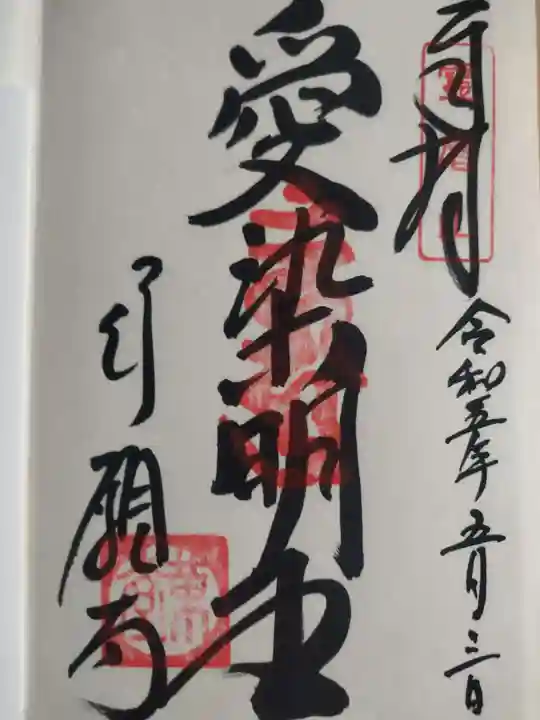 奉拝
令和五年五月三日
愛染明王
引願寺